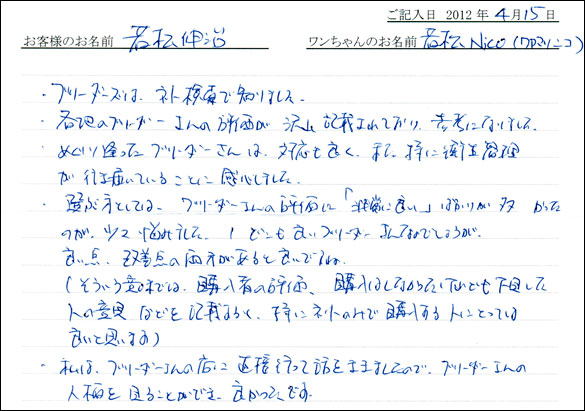 ご記入日 2012年 4月 15日
お客様のお名前 若松伸治 ワンちゃんのお名前 若松Nico(クロマメニコ)
・ブリーダーズは、ネット検索で知りました。
・各地のブリーダーさんの評価が沢山記載されており、参考になりました。
めぐり逢ったブリーダーさんは、対応も良く、また、特に衛生管理
が行き届いていることに感心しました。
・選ぶ方としては、ブリーダーさんの評価に「非常に良い」ばかりが多かった
のが、少々悩みました。(どこも良いブリーダーさんなのでしょうが。
良い点、改善点の両方があると良いですね。
(そういう意味では、購入者の評価、購入はしなかったけれども下見した
人の意見などを記載すると、特にネットのみで購入する人にとっては
良いと思います)
・私は、ブリーダーさんの店に直接行って話をきましたので、ブリーダーさんの
人柄を見ることができ、良かったです。